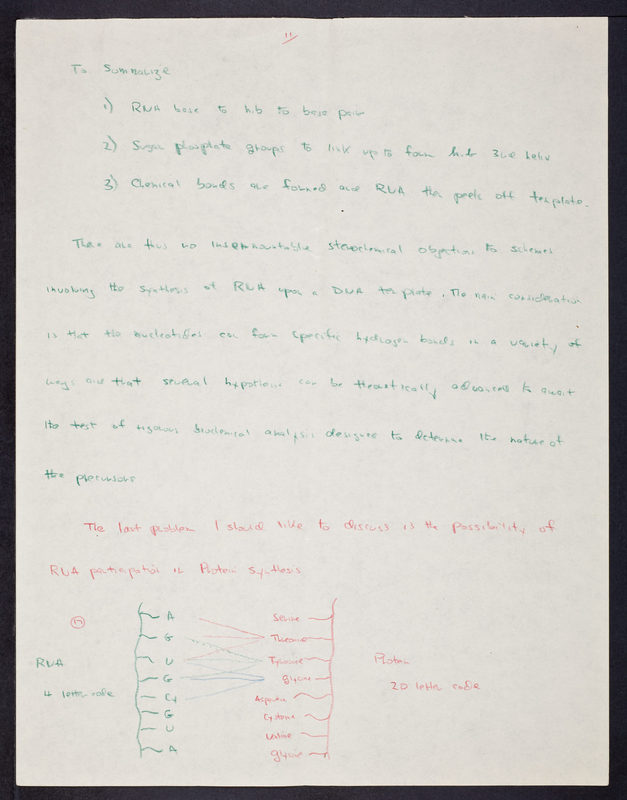 11
To Summarize
1) RNA base to h.b to base pair
2) Sugar phosphate groups to link up to form h.b 3rd helix
3) Chemical bonds are formed and RNA then peels off template.
There are thus no insurmountable stereochemical objections to schemes
involving the synthesis of RNA upon a DNA template. The main consideration
is that the nucleotides can form specific hydrogen bonds in a variety of
ways and that several hypotheses can be theoretically advanced to await
the test of rigorous biochemical analysis designed to determine the nature of
the precursors
The last problem I should like to discuss is the possibility of
RNA participation in Protein synthesis
17
A Serine
G Threonine
RNA U Tyrosine Protein
G Glycine
4 letter code Cy Asparagine 20 letter code
G Cysteine
U Valine
A Glycine